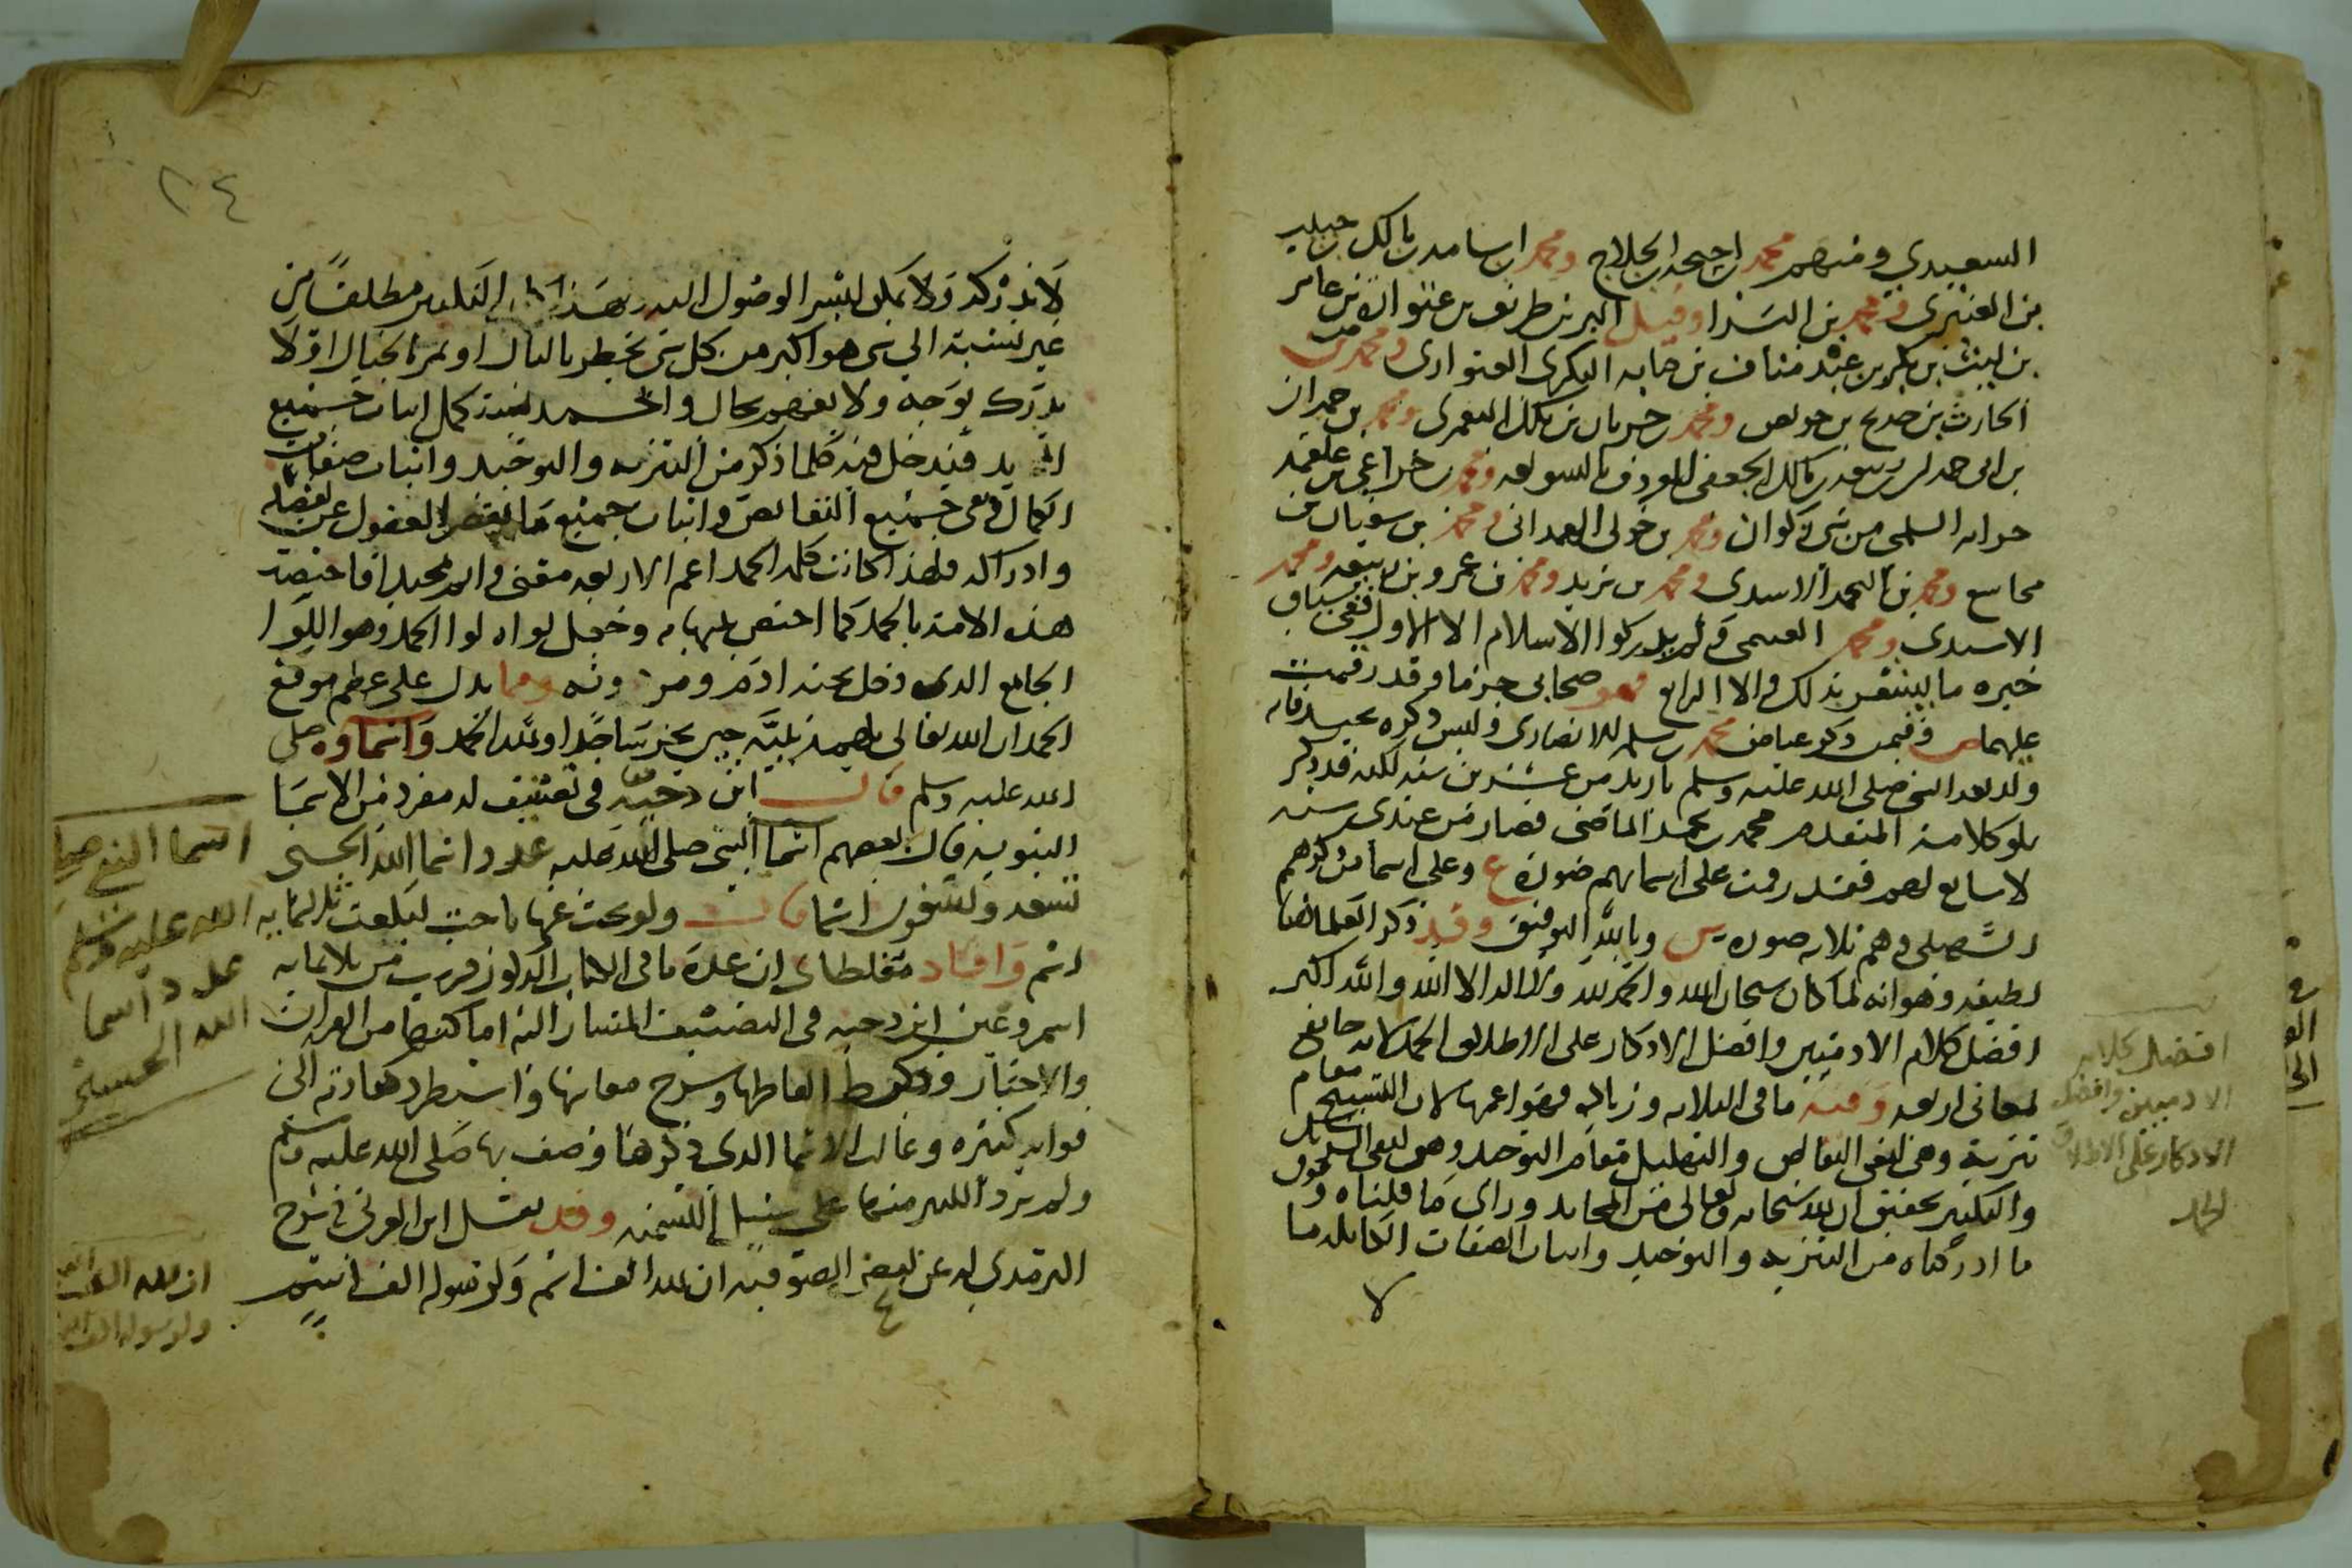 السعيدي ومنهم محمد بن احيحة بن الجلاح ومحمد بن اسامة بن مالك بن حبيب
بن العنبري ومحمد بن البراء وقيل البر بن طريف بن عتوارة بن عامر
بن ليث بن بكر بن عبد مناف بن كنانه البكري العتواري ومحمد بن
الحارث بن حديج بن حويص ومحمد بن حرماز بن مالك اليعمري ومحمد بن حمران
بن ابي حمران ربيعه بن مالك الجعفي المعروف بالشويعر ومحمد بن خزاعي بن علقمه
حرابه السلمي من بني ذكوان ومحمد بن خولي الهمداني ومحمد بن سفيان بن
مجاشع ومحمد بن اليحمد الاسدي ومحمد بن يزيد ومحمد بن عمرو بن ربيعه ومحمد
الاسيدي ومحمد الفقيمي ولم يدركوا الاسلام الا الاول ففي سياق
خبره ما يشعر بذلك والا الرابع فهو صحابي جزما وقد رقمت
عليهما ص وفيمن ذكر عياض محمد بن مسلمه الانصاري وليس ذكره بجيد فانه
ولد بعد النبي صلى الله عليه وسلم بازيد من عشرين سنه لكنه قد ذكر
تلو كلامه المتقدم محمد بن يحمد الماضي فصار من عندي سته
لا سابع لهم فقد رقمت على اسمائهم صورة ع وعلى اسما من ذكرهم
السهيلي وهم ثلاثه صوره س وبالله التوفيق وقد ذكر العلما هنا
لطيفه وهو انه لما كان سبحان الله والحمد لله ولا اله الا الله والله اكبر
افضل كلام الادميين وافضل الاذكار على الاطلاق الحمد لانه جامع
لمعاني اربعه وفيه ما في الثلاثه وزياده فهو اعمها لان التسبيح مقام
تنزيه وهي نفي النقائص والتهليل مقام التوحيد وهي نفي الشريك
والتكبير تحقيق ان لله سبحانه وتعالى من المحامد وراي ما قلناه وفوق
ما ادركناه من التنزيه والتوحيد واثبات الصفات الكامله ما
لا
افضل كلام
الادميين وافضل
الاذكار على الاطلاق
الحمد
٢٤
لا ندركه ولا يمكن البشر الوصول اليه وبهذا التكبير مطلقا من
غير نسبة الي شي هو اكبر من كل شي يخطر بالبال او يمر بالخيال اذ لا
يدرك بوجه ولا يفهم بحال والحمد لله كمل اثبات جميع
فيدخل فيه كلما ذكر من التنزيه والتوحيد واثبات صفات
الكمال ونفي جميع النقائص واثبات جميع ما يقصر العقول عن تفصيله
وادراكه فلهذا كانت كلمه الحمد اعم الاربعه معنى وامة محمد انما اختصت
هذه الامة بالحمد كما اختص نبيها به وجعل لواه لوا الحمد وهو اللوا
الجامع الذي دخل تحته ادم ومن دونه ومما يدل على عظم موقع
الحمد ان الله تعالى يلهمه نبيه حين يخر ساجدا اوله الحمد واسماوه صلى
الله عليه وسلم قال ابن دحيه في تصنيف له مفرد في الاسما
النبويه قال بعضهم اسما النبي صلى الله عليه عدد اسما الله الحسنى
تسعه وتسعون اسما قال ولو بحث عنها باحث لبلغت ثلثمايه
اسم وافاد مغلطاي ان عدة ما في الكتاب المذكور قريب من ثلاثمايه
اسم وعين ابن دحيه في التصنيف المشار اليه اماكنها من القران
والاخبار وضبط الفاظها وشرح معانيها واستطرد كعادته الى
فوايد كثيره وغالب الاسما الذي ذكرها وصف بها صلى الله عليه وسلم
ولم يرد الكثير منها على سبيل التسميه وقد نقل ابن العربي في شرح
الترمذي له عن بعض الصوفيه ان لله الف اسم ولرسوله الف اسم
اسما النبي صلى
الله عليه وسلم
عدد اسما
الله الحسنى
ان لله الف اسم
ولرسوله الف اسم